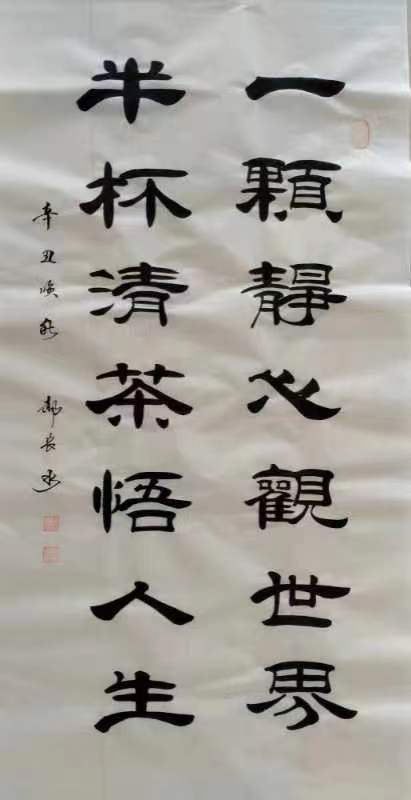 一顆靜心觀世界
半杯清茶悟人生
辛丑 郝長